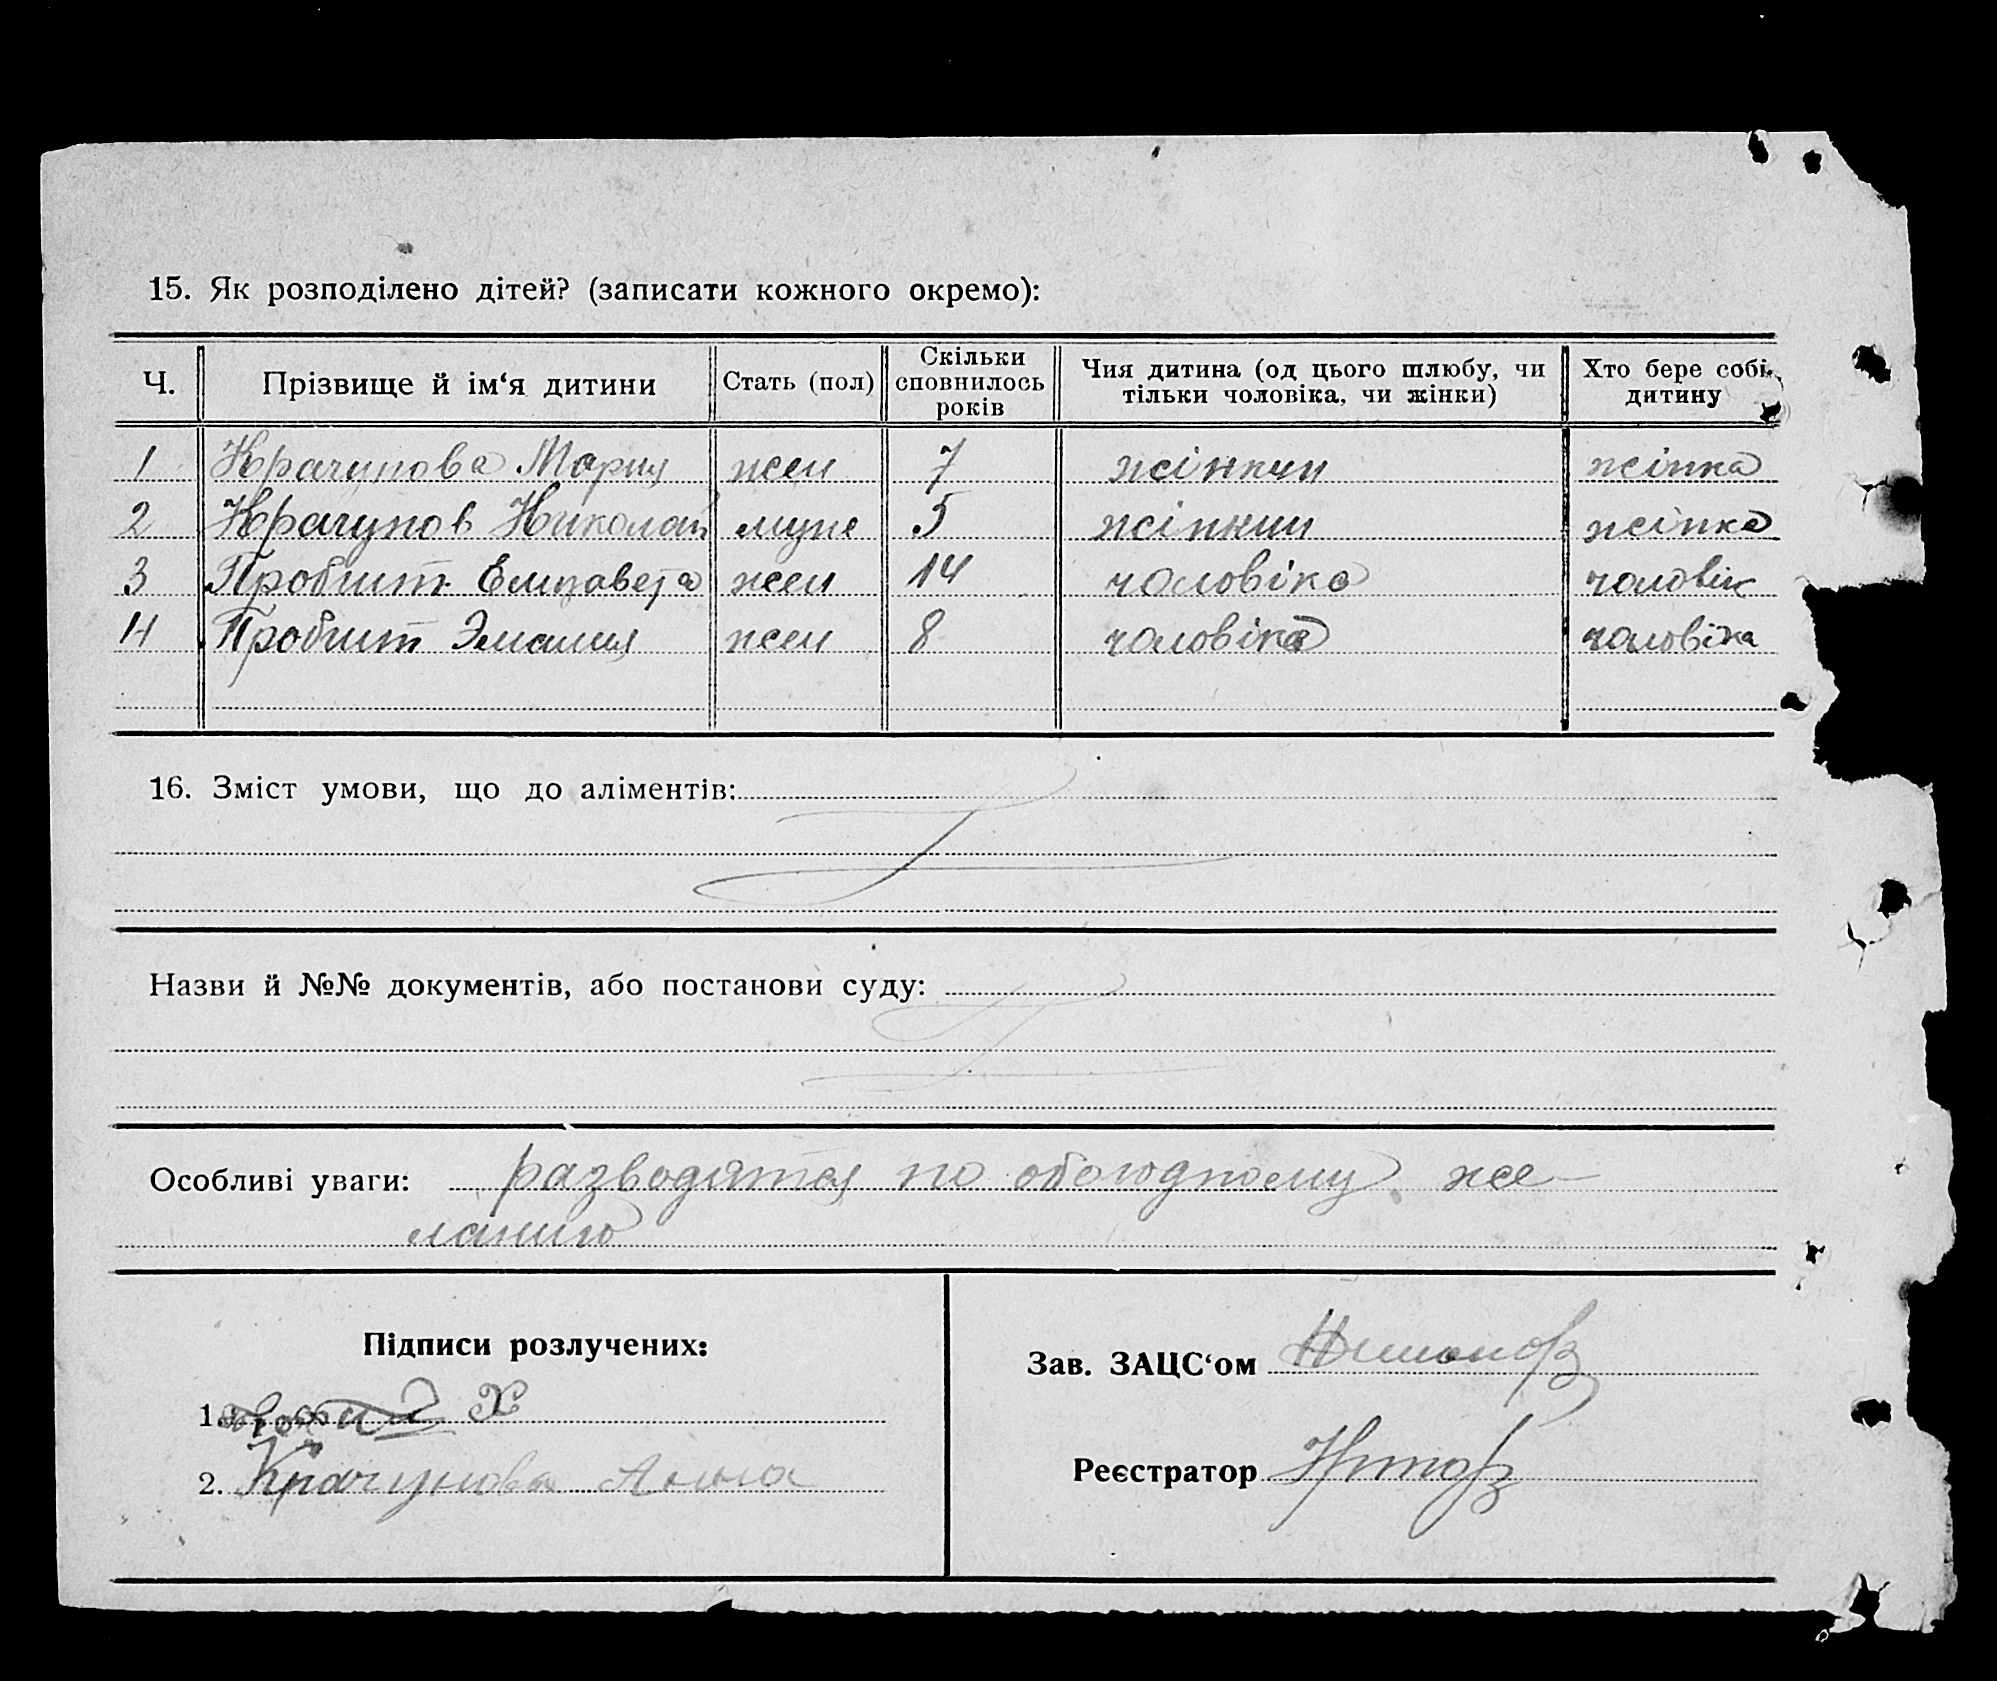 15. Як розподілено дітей? (записати кожного окремо):
Ч. Прізвище й ім‘я дитини Стать (пол) Скільки сповнилось років Чия дитина (од цього шлюбу, чи тільки чоловіка, чи жінки) Хто бере собі дитину
1 Крачунова Мария жен 7 жінкин жінка
2 Крачунов Николай муже 5 жінкин жінка
3 Пробит Елизавета жен 14 чоловіка чоловік
4 Пробит Эмалия жен 8 чоловіка чоловіка
16. Зміст умови, що до аліментів:
Назви й №№ документів, або постанови суду:
Особливі уваги: разводятся по обоюдному же-
ланию
Підписи розлучених:
Зав. ЗАЦС‘ом
1. Х
2. Крачунова Анна
Реєстратор